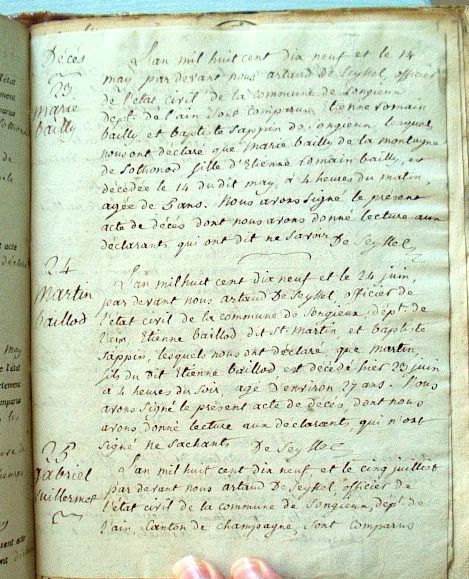 Décés
23
marie
bailly
L'an mil huit cent dix neuf et le 14
may par devant nous artaud De Seyssel, officier
de l'état civil de la commune de Songieux
dept. de l'ain sont comparus Etienne romain
bailly, et baptiste Sappin de Songieux, lesquels
nous ont déclaré que Marie bailly de la montagne
de Sothonod fille d'Etienne romain bailly, est
décédée le 14 du dit may, à 4 heures du matin,
agée de 3 ans. Nous avons signé le présent
acte de décés dont nous avons donné lecture aux
déclarants, qui ont dit ne savoir. De Seyssel
24
Martin
baillod
L'an mil huit cent dix neuf et le 24 juin,
par devant nous artaud De Seyssel, officier de
l'état civil de la commune de Songieux, dept. de
l'ain, Etienne baillod dit St Martin et baptiste
Sappin, lesquels nous ont déclaré que martin,
fils du dit Etienne baillod est décédé hier 23 juin
à 4 heures du soir, agé d'environ 27 ans. Nous
avons signé le présent acte de décés, dont nous
avons donné lecture aux déclarants, qui n'ont
signé ne sachants De Seyssel
25
gabriel
Guillermet
L'an mil huit cent dix neuf et le cinq juillet
par devant nous artaud De Seyssel, officier de
l'état civil de la commune de Songieux, dept. de
l'ain Canton de champagne, sont comparus